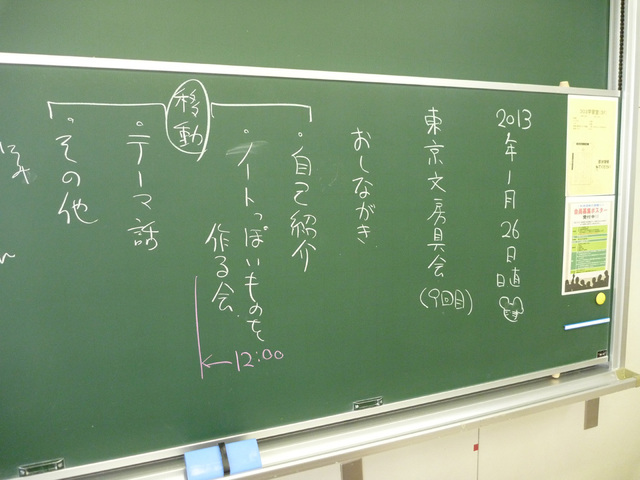 2013年1月26日 日直
東京文房具会
(9回目)
おしながき
・自己紹介
・ノートっぽいものを
作る会
←12:00
移動
・テーマ話
・その他